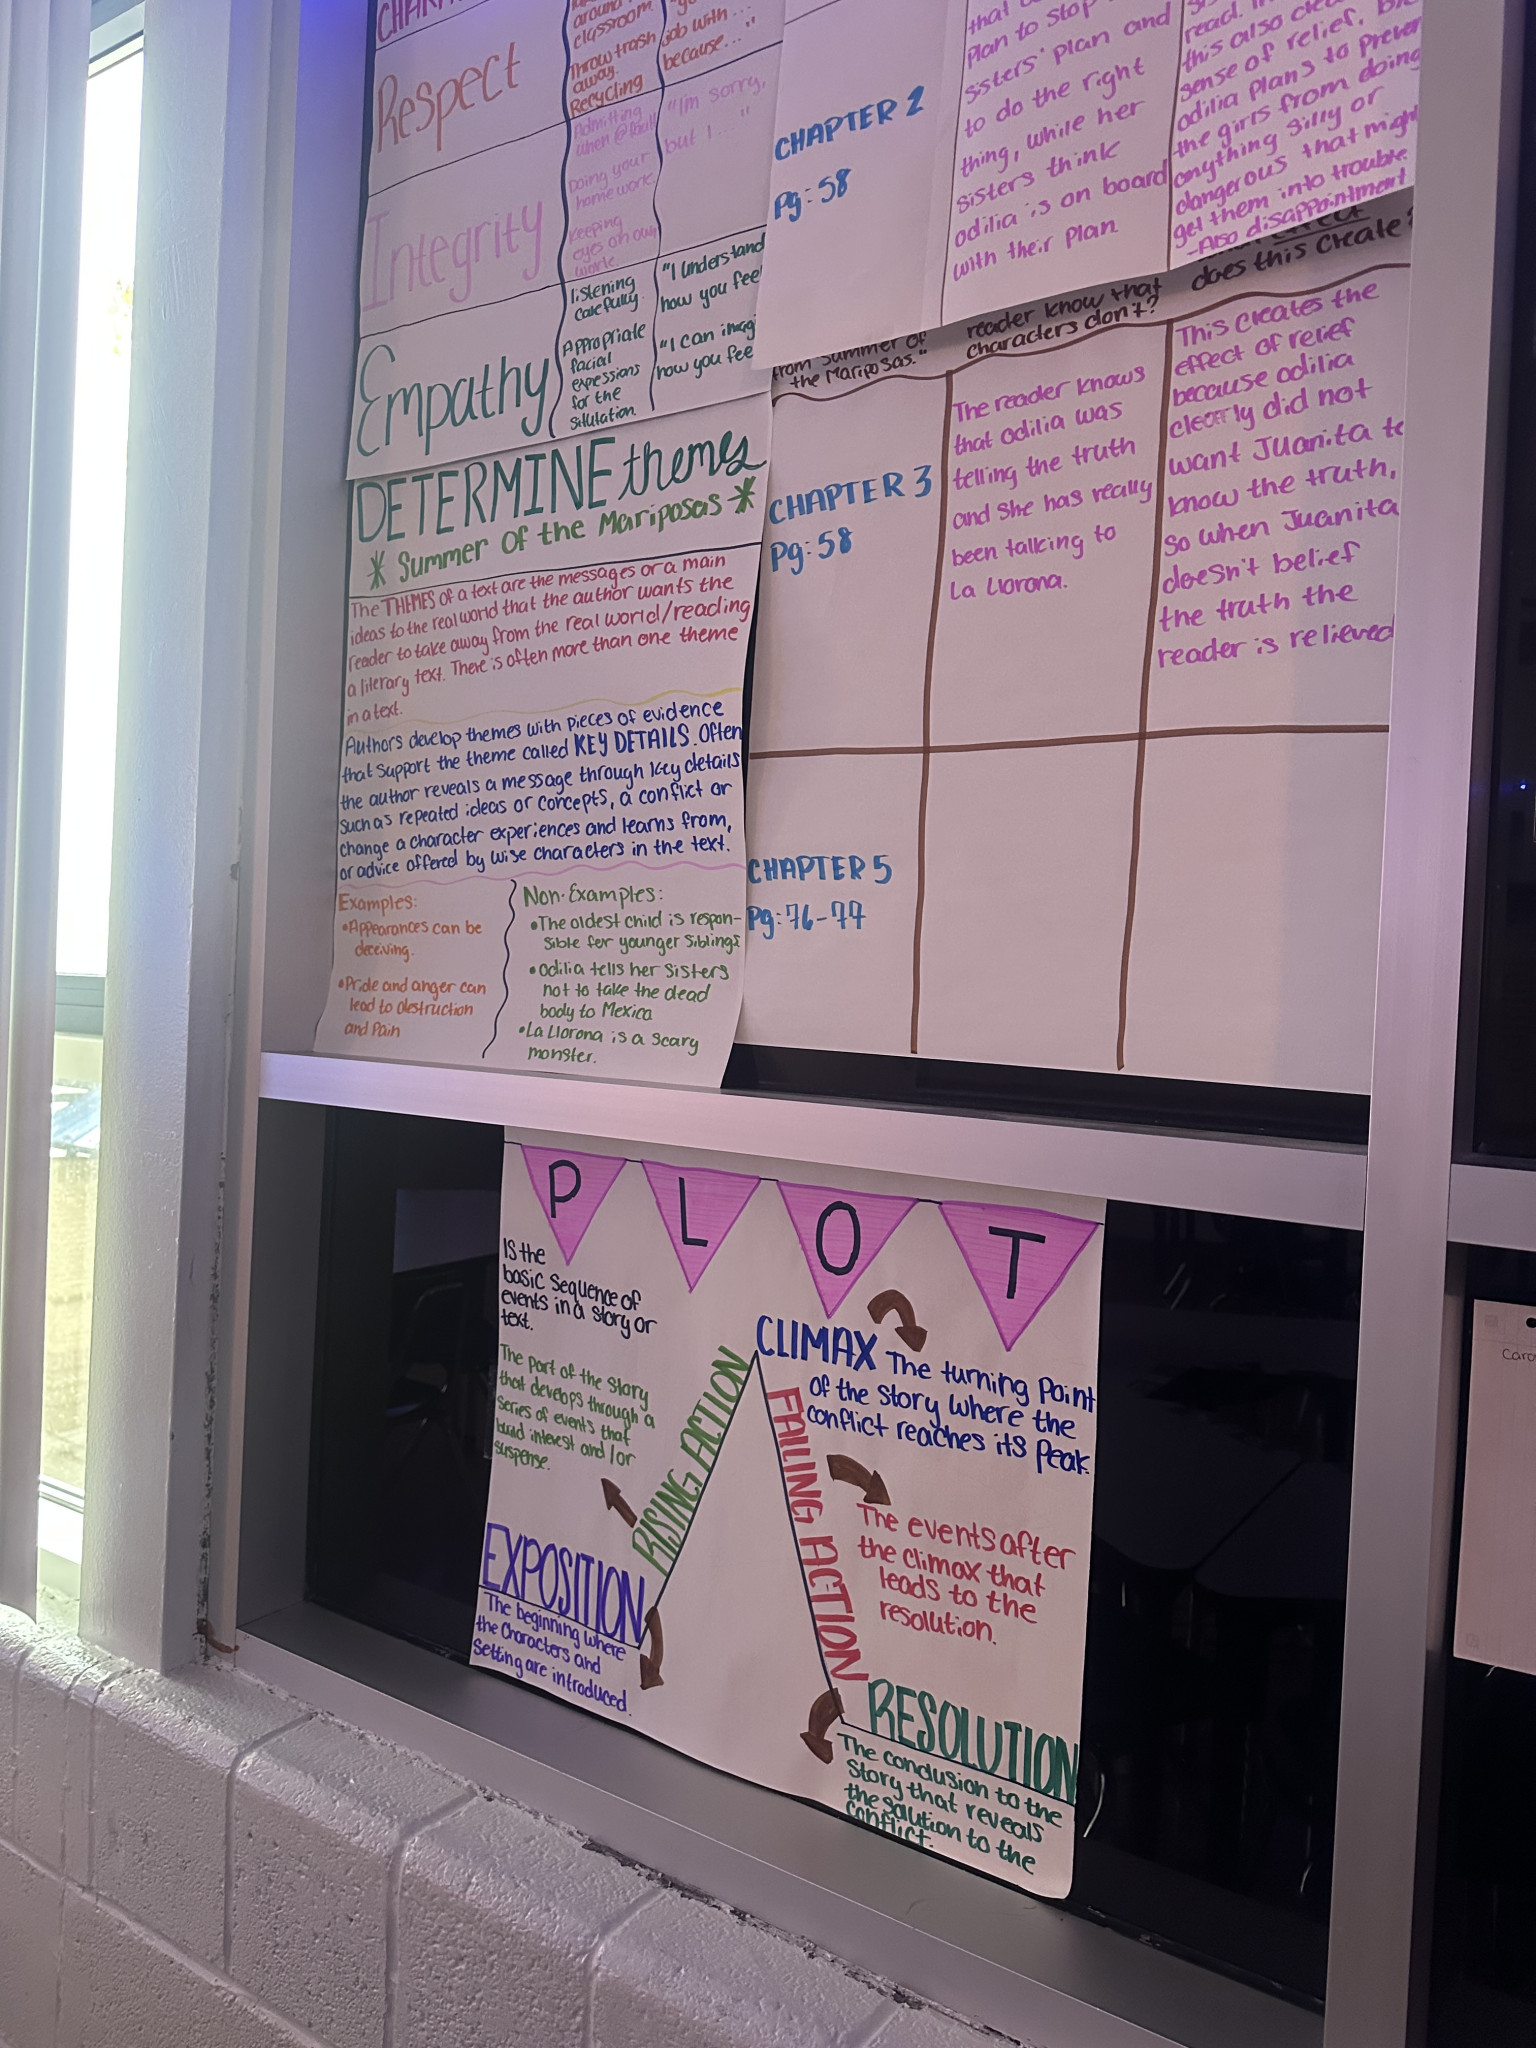 Respect
around
classroom.
Throw trash
away.
Recycling
job with...
because..."
Integrity
Admitting
when @ fault
Doing your
homework.
Keeping
eyes on own
work.
"I'm sorry,
but I ..."
Empathy
listening
carefully.
Appropriate
facial
expessions
for the
situtation.
"I understand
how you fee
"I can imag
how you fee
DETERMINE themes
* Summer of the Mariposas *
The THEMES of a text are the messages or a main
ideas to the real world that the author wants the
reader to take away from the real world/reading
a literary text. There is often more than one theme
in a text.
Authors develop themes with pieces of evidence
that support the theme called KEY DETAILS. Often
the author reveals a message through key details
such as repeated ideas or concepts, a conflict or
change a character experiences and learns from,
or advice offered by wise characters in the text.
Examples:
•Appearances can be
deceiving.
•Pride and anger can
lead to destruction
and Pain
Non-Examples:
•The oldest child is respon-
sible for younger siblings
•Odilia tells her sisters
not to take the dead
body to Mexico
•La Llorona is a scary
monster.
CHAPTER 2
Pg: 58
that
Plan to stop
sisters' plan and
to do the right
thing, while her
sisters think
odilia is on board
with their Plan.
read.
this also
sense of relief.
odilia plans to preven
the girls from doing
anything silly or
dangerous that might
get them into trouble.
-Also disappointment
from Summer of
the Mariposas."
reader know that
characters don't?
does this create?
CHAPTER 3
Pg: 58
The reader knows
that odilia was
telling the truth
and she has really
been talking to
La Llorona.
This creates the
effect of relief
because odilia
clearly did not
want Juanita to
know the truth,
so when Juanita
doesn't belief
the truth the
reader is relieved
CHAPTER 5
Pg: 76-77
PLOT
Is the
basic sequence of
events in a story or
text.
The part of the story
that develops through a
series of events that
build interest and /or
suspense.
RISING ACTION
CLIMAX The turning point
of the story where the
conflict reaches its peak.
FALLING ACTION
The events after
the climax that
leads to the
resolution.
EXPOSITION
The beginning where
the characters and
setting are introduced.
RESOLUTION
The conclusion to the
story that reveals
the solution to the
conflict.